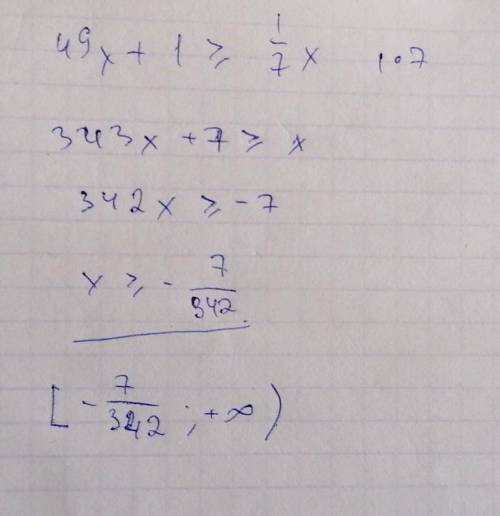 49x + 1 ≥ 1/7 x |·7
343x + 7 ≥ x
342x ≥ -7
x ≥ - 7/342
[ - 7/342 ; +∞ )